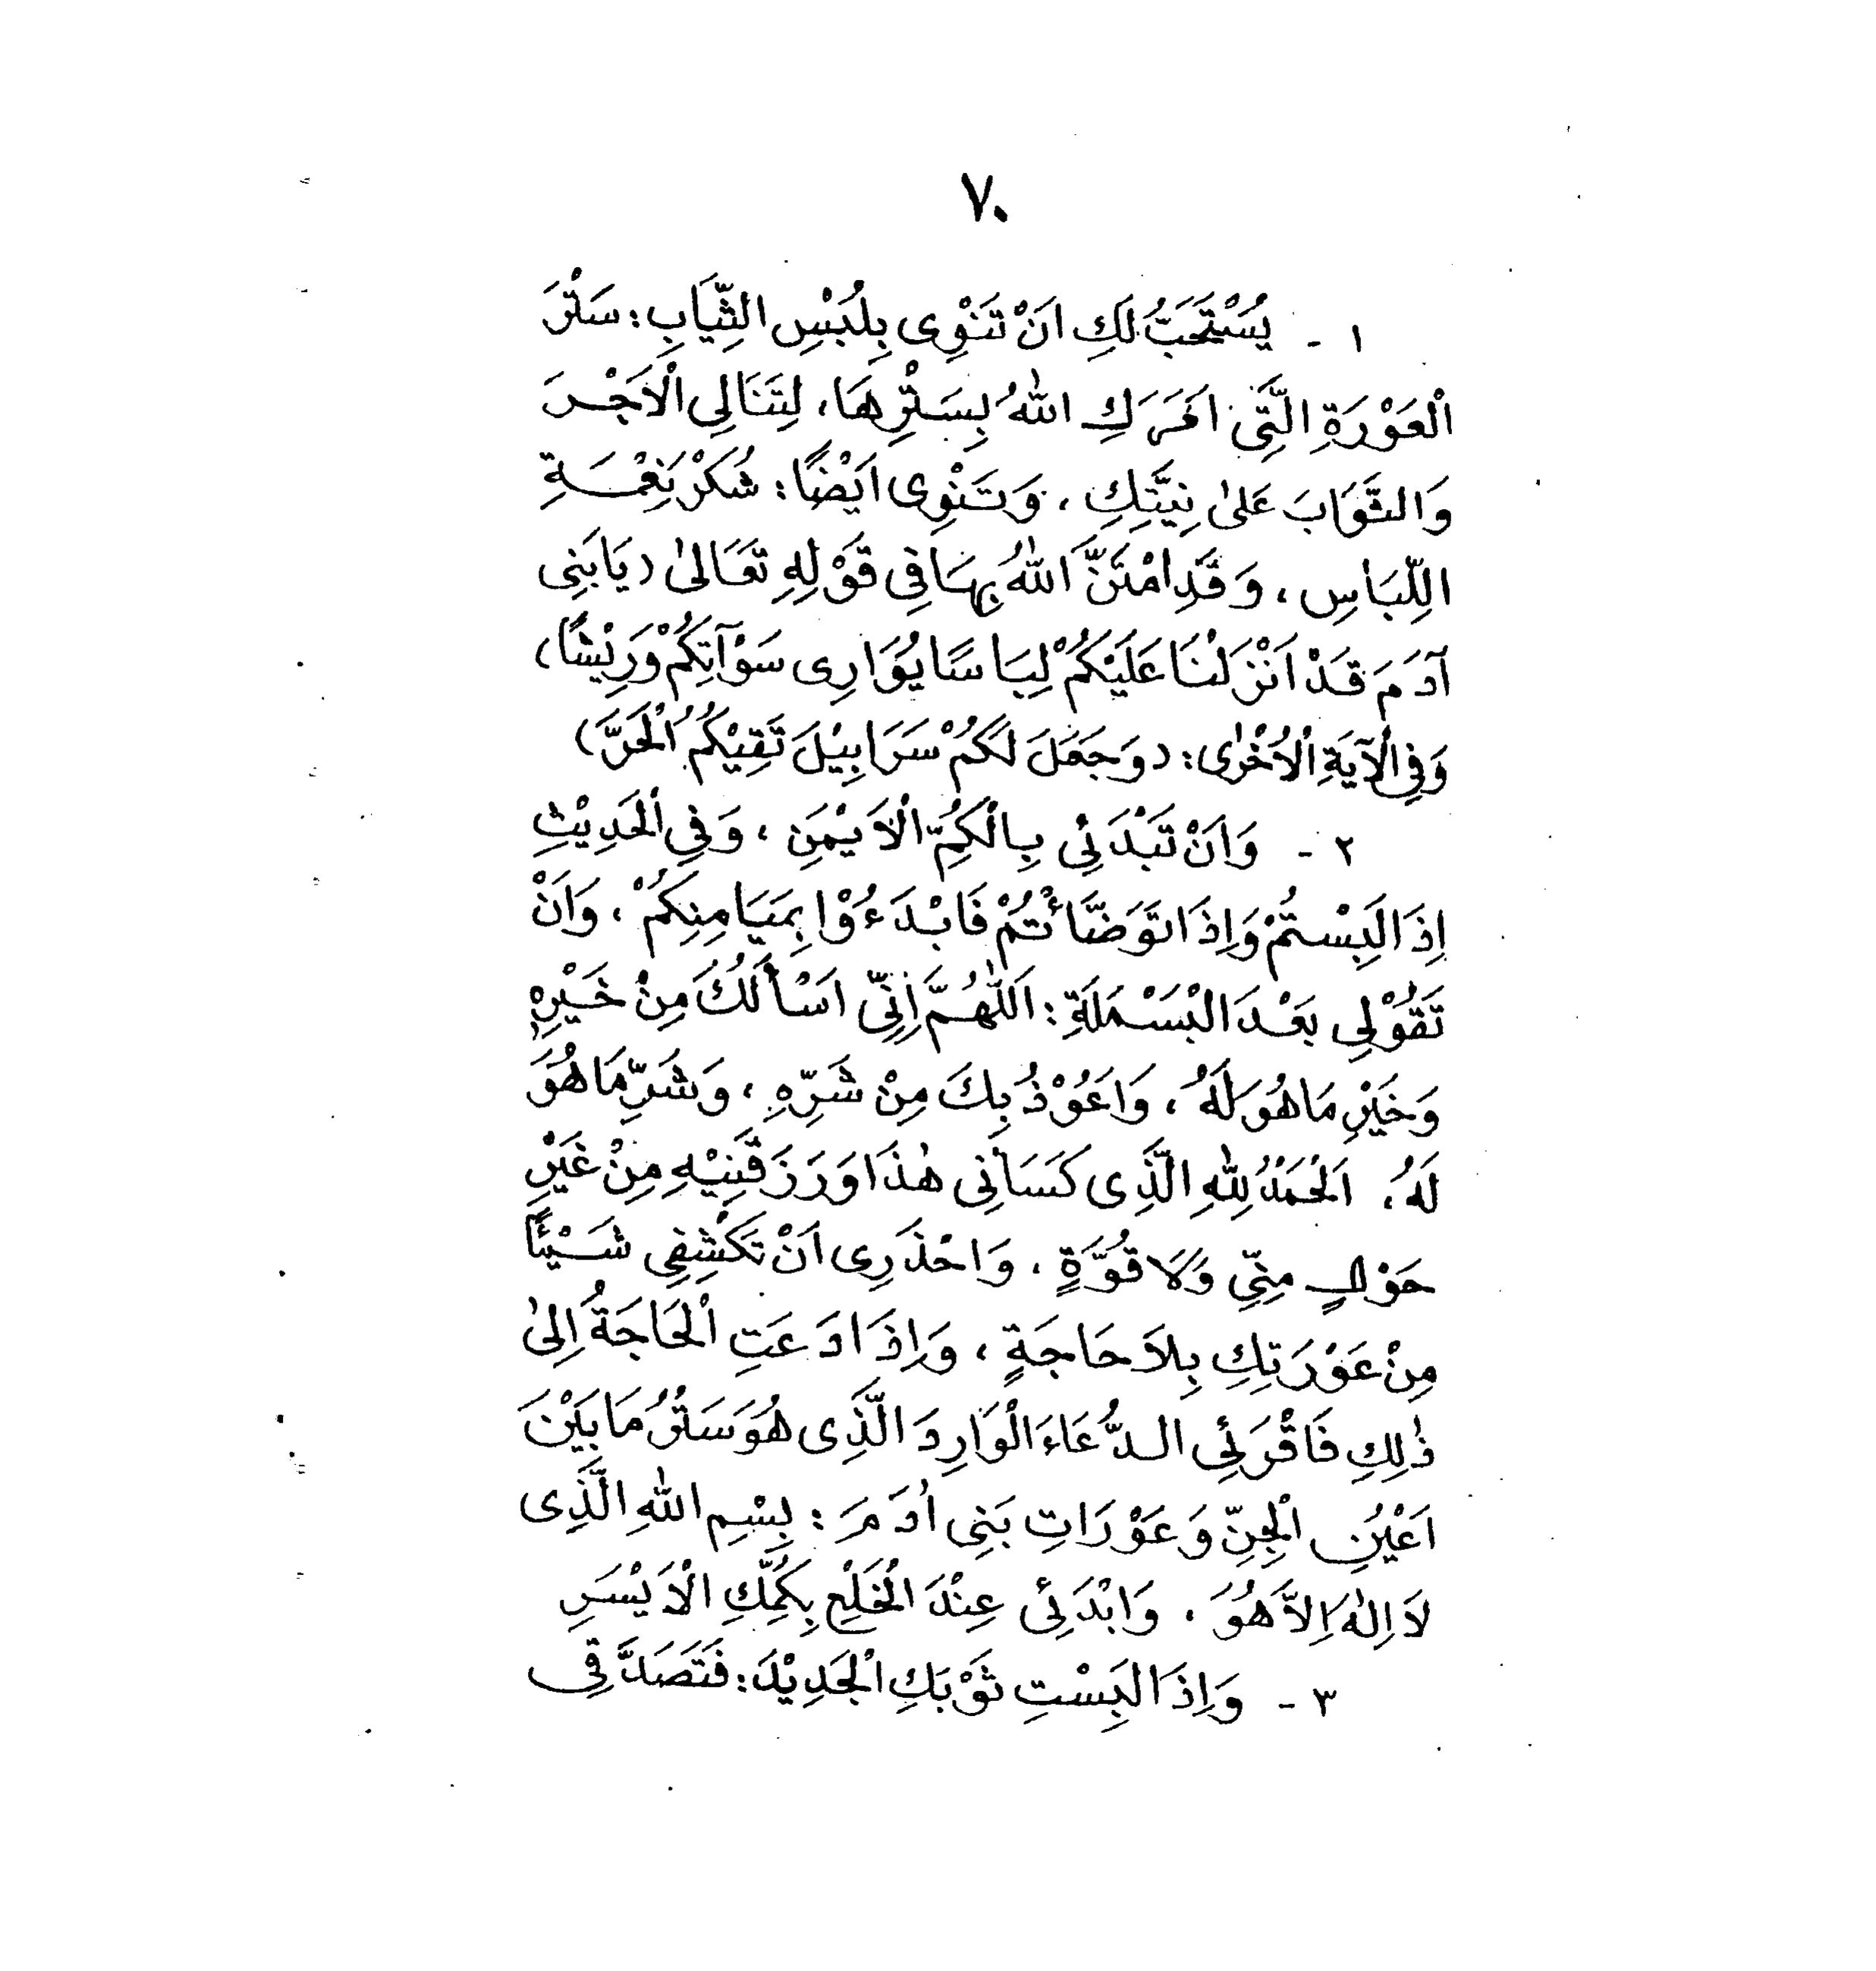 ٧٠
١ - يُسْتَحَبُّ لَكِ اَنْ تَنْوِى بِلُبْسِ الثِّيَابِ: سَتْرَ
الْعَوْرَةِ الَّتِى اَمَرَكِ اللهُ بِسَتْرِهَا، لِتَنَالِى الْاَجْرَ
وَالثَّوَابَ عَلىٰ نِيَّتِكِ، وَتَنْوِى اَيْضًا: شُكْرَ نِعْمَةِ
اللِّبَاسِ، وَقَدِ امْتَنَّ اللهُ بِهَا فِى قَوْلِهِ تَعَالىٰ (يَابَنِى
آدَمَ قَدْ اَنْزَلْنَا عَلَيْكُمْ لِبَاسًا يُوَارِى سَوْآتِكُمْ وَرِيْشًا)
وَفِى الْآيَةِ الْاُخْرٰى: (وَجَعَلَ لَكُمْ سَرَابِيْلَ تَقِيْكُمُ الْحَرَّ)
٢ - وَاَنْ تَبْدَئِى بِالْكُمِّ الْاَيْمَنِ، وَفِى الْحَدِيْثِ
اِذَا لَبِسْتُمْ وَاِذَا تَوَضَّأْتُمْ فَابْدَءُوْا بِمَيَامِنِكُمْ، وَاَنْ
تَقُوْلِى بَعْدَ الْبَسْمَلَةِ: اَللّٰهُمَّ اِنِّى اَسْأَلُكَ مِنْ خَيْرِهِ
وَخَيْرِ مَا هُوَ لَهُ، وَاَعُوْذُ بِكَ مِنْ شَرِّهِ، وَشَرِّ مَا هُوَ
لَهُ، اَلْحَمْدُ لِلّٰهِ الَّذِى كَسَانِى هٰذَا وَرَزَقَنِيْهِ مِنْ غَيْرِ
حَوْلٍ مِنِّى وَلَا قُوَّةٍ، وَاحْذَرِى اَنْ تَكْشِفِى شَيْئًا
مِنْ عَوْرَتِكِ بِلاَ حَاجَةٍ، وَاِذَا دَعَتِ الْحَاجَةُ اِلىٰ
ذٰلِكِ فَاقْرَئِى الدُّعَاءَ الْوَارِدَ الَّذِى هُوَ سَتْرُ مَا بَيْنَ
اَعْيُنِ الْجِنِّ وَعَوْرَاتِ بَنِى اٰدَمَ: بِسْمِ اللهِ الَّذِى
لاَ اِلٰهَ اِلاَّ هُوَ، وَابْدَئِى عِنْدَ الْخَلْعِ بِكُمِّكِ الْاَيْسَرِ
٣ - وَاِذَا لَبِسْتِ ثَوْبَكِ الْجَدِيْدَ: فَتَصَدَّقِى